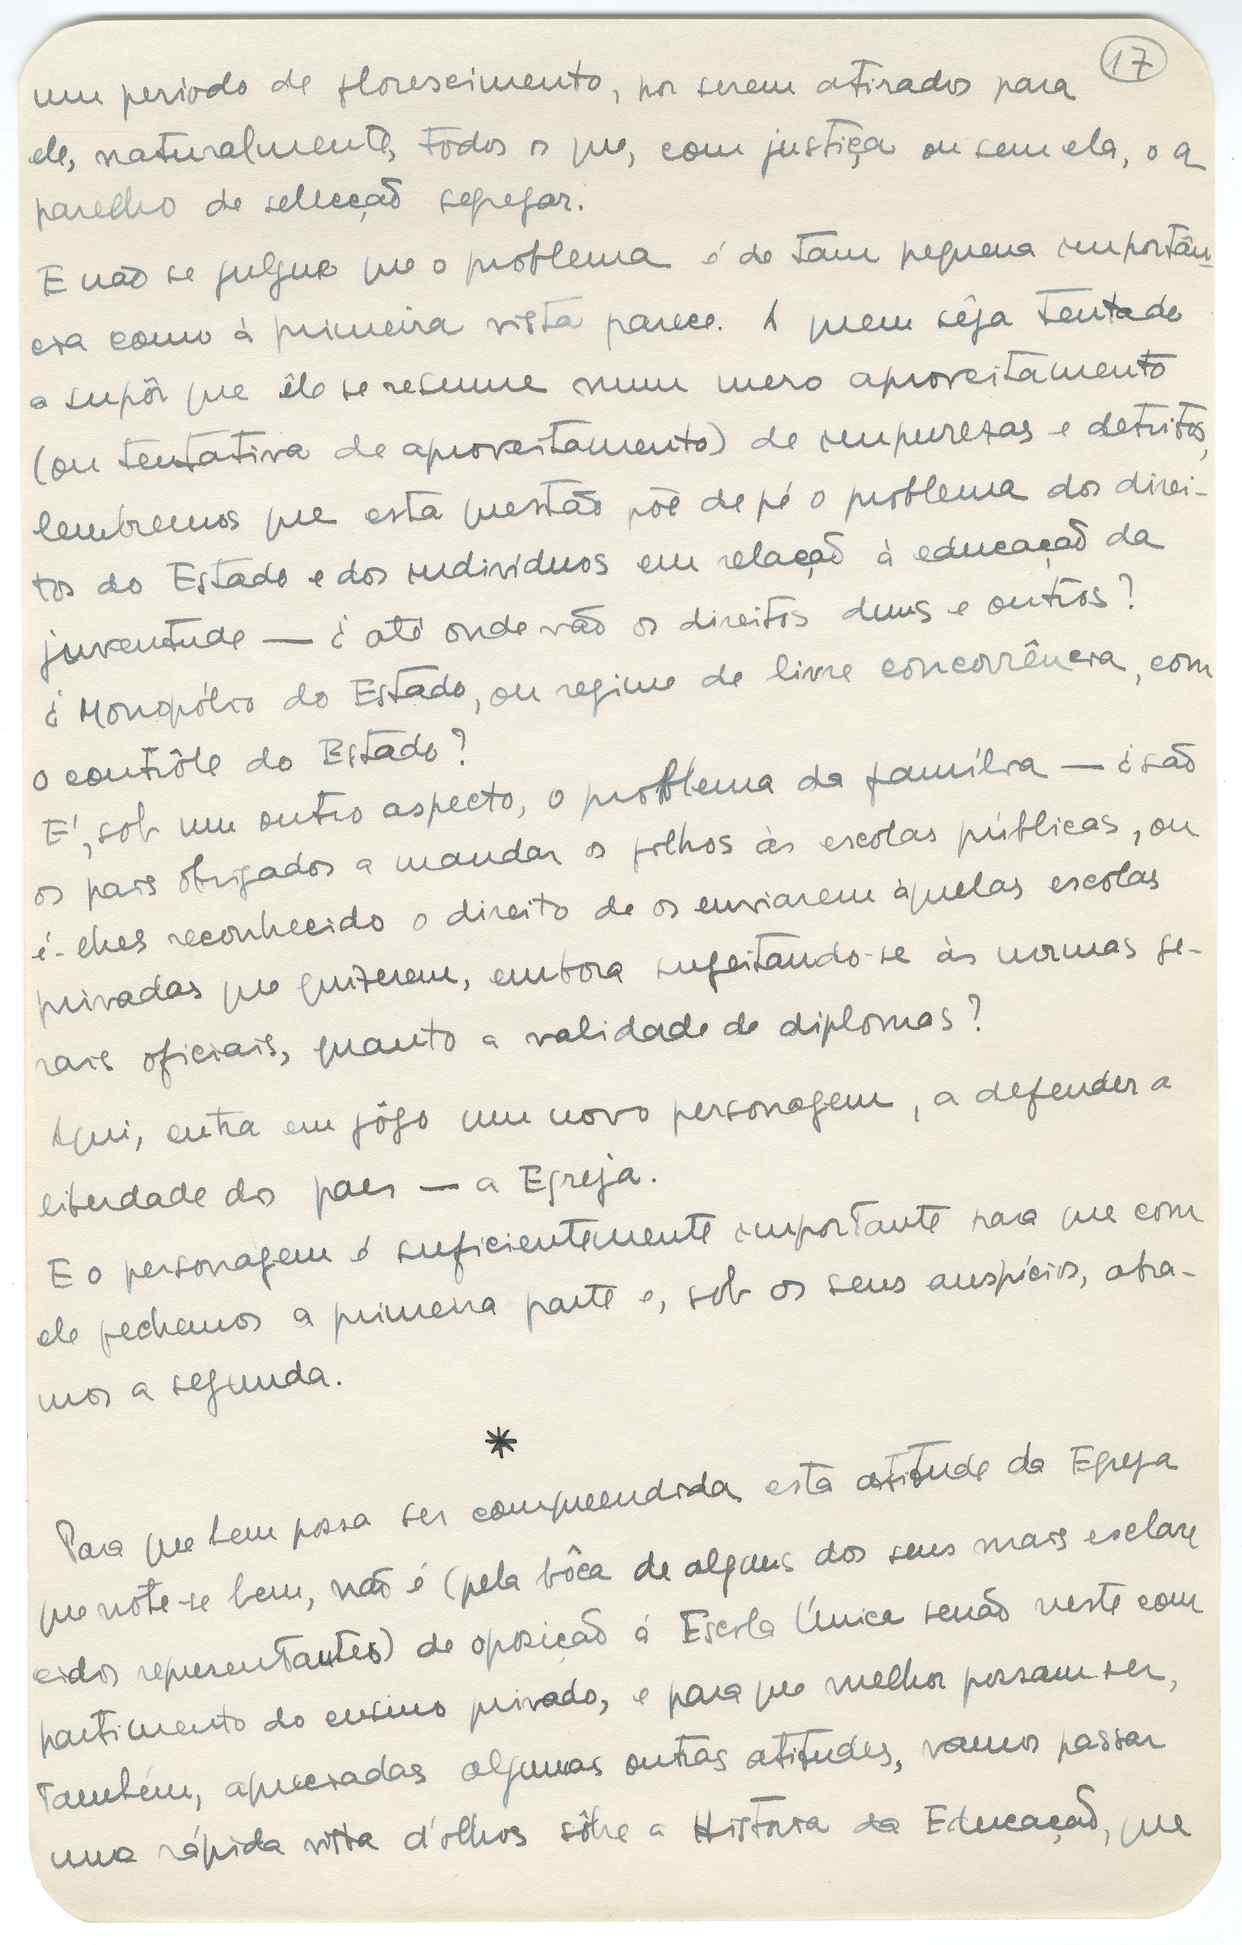 17
um periodo de florescimento, por serem atirados para
ele, naturalmente, todos os que, com justiça ou sem ela, o a
parelho de selecção segregar.
E não se julgue que o problema é de tam pequena importân-
cia como á primeira vista parece. A quem sêja tentado
a supôr que êle se resume num mero aproveitamento
(ou tentativa de aproveitamento) de impurezas e detritos,
lembremos que esta questão põe de pé o problema dos direi-
tos do Estado e dos indivíduos em relação à educação da
juventude — ¿ até onde vão os direitos duns e outros?
¿ Monopólio do Estado, ou regime de livre concorrência, com
o contrôle do Estado?
E', sob um outro aspecto, o problema da família — ¿ são
os pais obrigados a mandar os filhos às escolas públicas, ou
é-lhes reconhecido o direito de os enviarem àquelas escolas
privadas que quizerem, embora sugeitando-se às normas ge-
rais oficiais, quanto a validade de diplomas?
Aqui, entra em jôgo um novo personagem, a defender a
liberdade dos paes — a Egreja.
E o personagem é suficientemente importante para que com
ele fechemos a primeira parte e, sob os seus auspícios, abra-
mos a segunda.
*
Para que bem possa ser compreendida esta atitude da Egreja
que note-se bem, não é (pela bôca de alguns dos seus mais esclare
cidos representantes) de oposição á Escola Única senão neste com
partimento do ensino privado, e para que melhor possam ser,
também, apreciadas algumas outras atitudes, vamos passar
uma rápida vista d'olhos sôbre a História da Educação, que